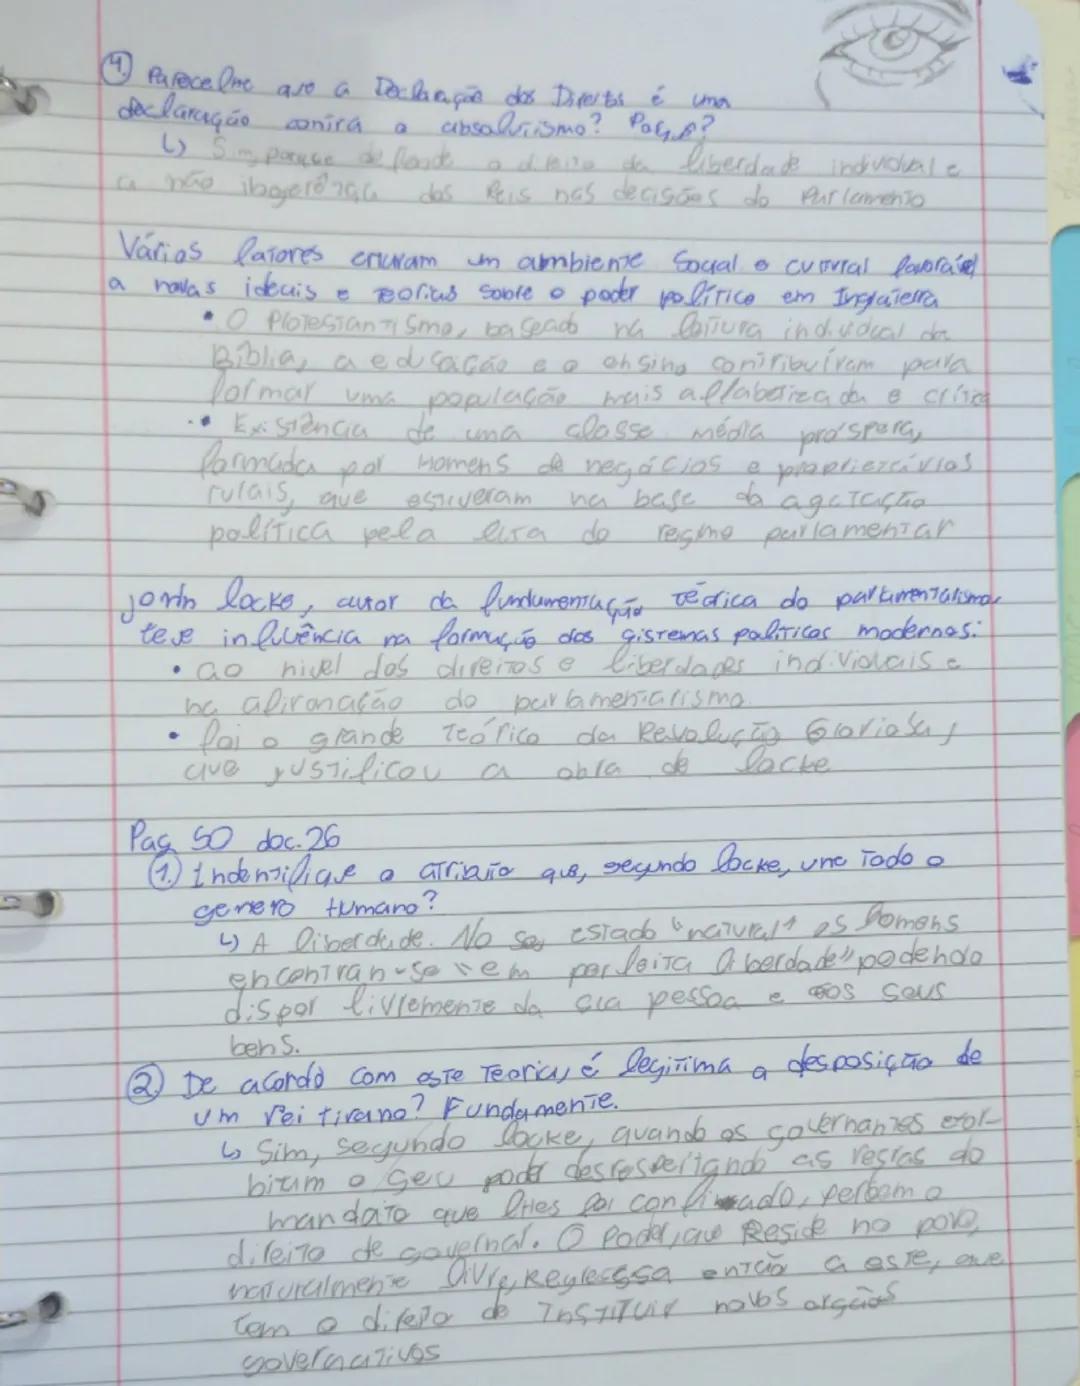 4. Parece lhe que a Declaração dos Direitos é uma
declaração contra o absolutismo? Porquê?
↳ Sim, porque defende o direito da liberdade individual e
a não dos Reis nas decisões do Parlamento
Vários fatores criaram um ambiente Social e cultural favorável
a novas ideais e teorias sobre o poder político em Inglaterra
• O Protestantismo, baseado na leitura individual da
Bíblia, a educação e o ensino contribuíram para
formar uma população mais alfabetizada e crítica
• Existência de uma classe média próspera,
formada por Homens de negócios e proprietários
rurais, que estiveram na base da agitação
política pela luta do regime parlamentar
John Locke, autor da fundamentação teórica do parlamentarismo
teve influência na formação dos sistemas políticos modernos:
• ao nivel dos direitos e liberdades individuais e
na afirmação do parlamentarismo.
• foi o grande teórico da Revolução Gloriosa,
que justificou a obra de Locke
Pag 50 doc. 26
1. Indentifique o atributo que, segundo Locke, une todo o
genero Humano?
↳ A liberdade. No seu estado "natural" os homens
encontran-se "em perfeita liberdade" podendo
dispor livremente da sua pessoa e dos seus
bens.
2. De acordo com este teoria, é legitima a desposição de
um rei tirano? Fundamente.
↳ Sim, segundo Locke, quando os governantes
o seu poder desrespeitando as regras do
mandato que lhes foi confinado, perdem o
direito de governar. O Poder, que Reside no povo,
naturalmente livre, Reglessa então a este, que
tem o direito de Instituir novos orgãos
governativos